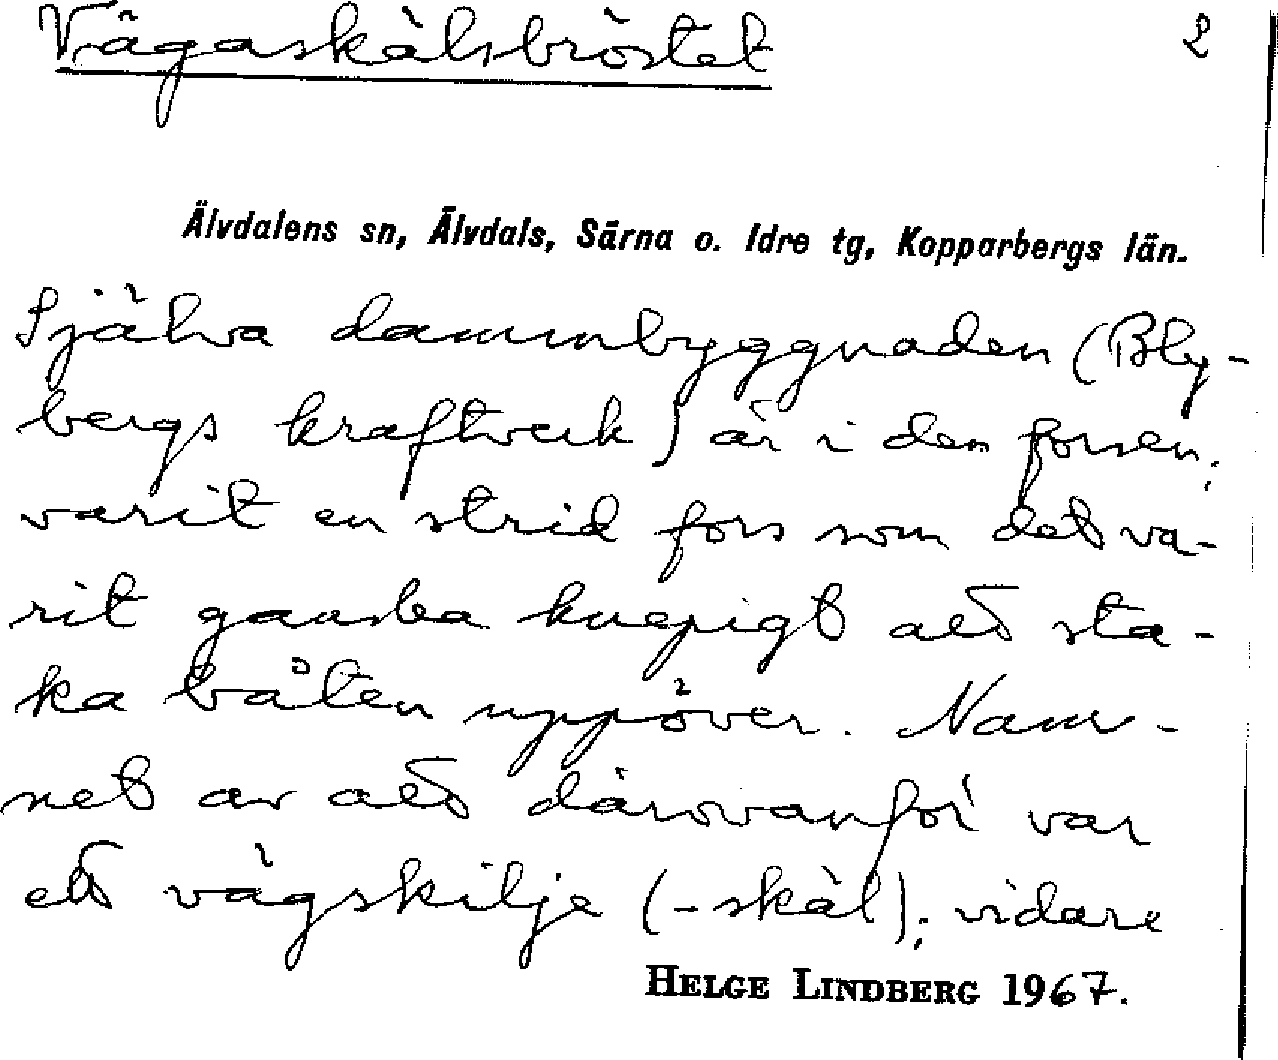 Vägaskälsbröstet 2
Älvdalens sn, Älvdals, Särna o. Idre tg, Kopparbergs län.
Själva dammbyggnaden (Bly-
bergs kraftverk) är i den forsen;
varit en strid fors som det va-
rit ganska knepigt att sta-
ka båten uppöver. Nam-
net av att därovanför var
ett vägskilje (-skäl); vidare
HELGE LINDBERG 1967.